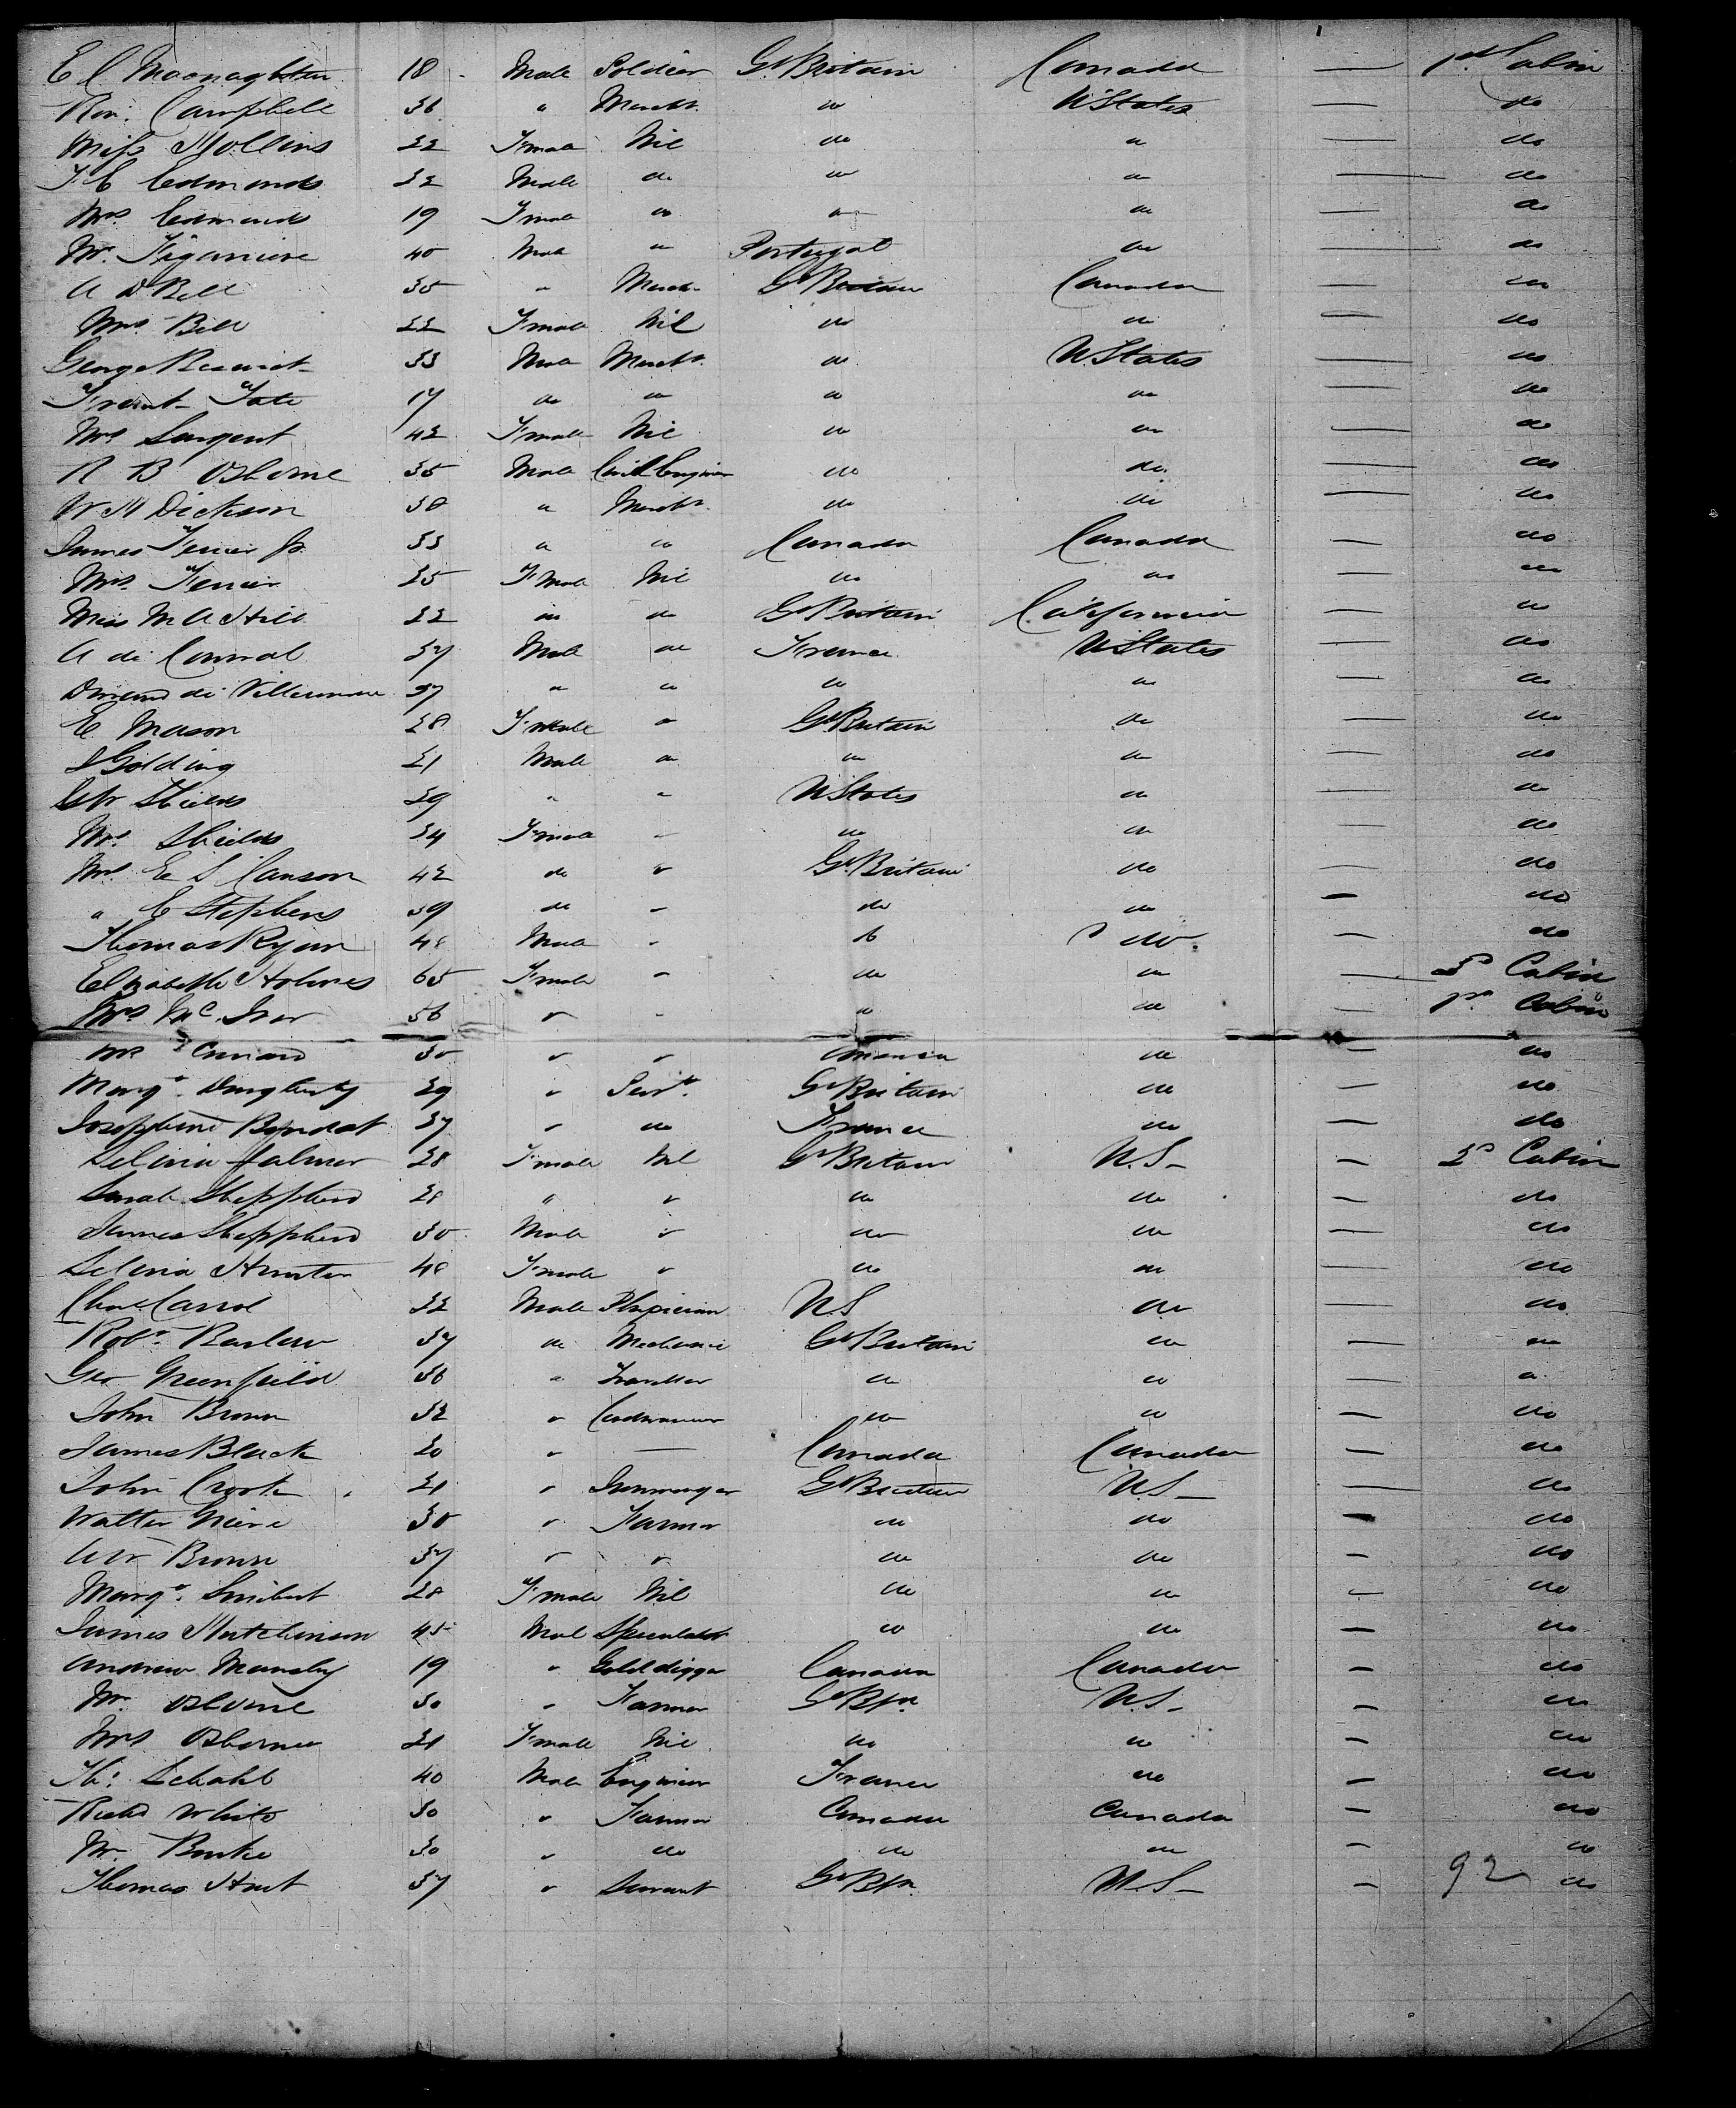 E C Macnaghten 18 Male Soldier Gt Britain Canada — 1st Cabin
Campbell 36 " Mercht do U States — do
Miss Hollins 22 Fmale Nil do " — do
T E Edmonds 32 Male do do do — do
Mrs Edmonds 19 Fmale do do do — do
Mr. Figaniere 40 Male " Portugal do — do
A D Bell 35 " Mercht Gt Britain Canada — do
Mrs Bell 22 Fmale Nil do do — do
George 33 Male Mercht do U States — do
Tate 17 do do do do — do
Mrs Sargent 42 Fmale Nil do do — do
R B Osborne 35 Male Civil Engineer do do — do
W H Dickson 38 " Mercht do do — do
James Ferrier Jr. 33 " do Canada Canada — do
Mrs Ferrier 25 Fmale Nil do do — do
Miss M A Hill 22 do do Gt Britain California — do
A de 37 Male do France U States — do
de 37 " do do do — do
E Mason 28 Fmale " Gt Britain do — do
J Golding 21 Male do do do — do
Shields 29 " " U States do — do
Mrs Shields 24 Fmale " do do — do
Mrs E S Canson 42 do " Gt Britain do — do
" E Stephens 39 do " do do — do
Thomas Ryan 48 Male " do do — do
Elizabeth Holmes 65 Fmale " do do — 2d Cabin
Mrs McIver 56 " " do do — 1st Cabin
Mrs Cunard 30 " " America do — do
Margt Daugherty 29 " Servt. Gt Britain do — do
Josephine 37 " do France do — do
Selina Palmer 28 Fmale Nil Gt Britain U.S — 2d Cabin
Sarah Sheppherd 28 " " do do — do
James Sheppherd 30 Male " do do — do
Selina Hunter 48 Fmale " do do — do
Chas Carrol 32 Male Physician U S do — do
Robt. Barlow 37 do Mechanic Gt Britain do — do
Geo Greenfield 36 " Traveller do do — do
John Brown 32 " Cordwainer do do — do
James Black 20 " — Canada Canada — do
John Crook 21 " Ironmonger Gt Britain U.S — do
Walter 30 " Farmer do do — do
A W Brown 37 " " do do — do
Margt. Smibert 28 Fmale Nil do do — do
James Hutchinson 45 Male Speculator do do — do
Andrew 19 " Gold digger Canada Canada — do
Mr. Osborne 30 " Farmer Gt Btn. U.S — do
Mrs Osborne 21 Fmale Nil do do — do
Th: Schahl 40 Male Engineer France do — do
Richd White 30 " Farmer Canada Canada — do
Mr. Burke 30 " do do do — do
Thomas Hunt 37 " Servant Gt Btn. U.S — do
92